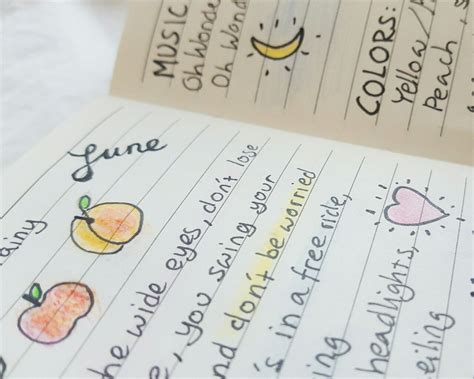 MUSIC
Oh Wonde
Oh Wond
COLORS:
Yellow/
Peach
June
ainy
he wide eyes, don't lose
, you swing your
nd don't be worried
's in a free ride,
ing
headlights,
eiling